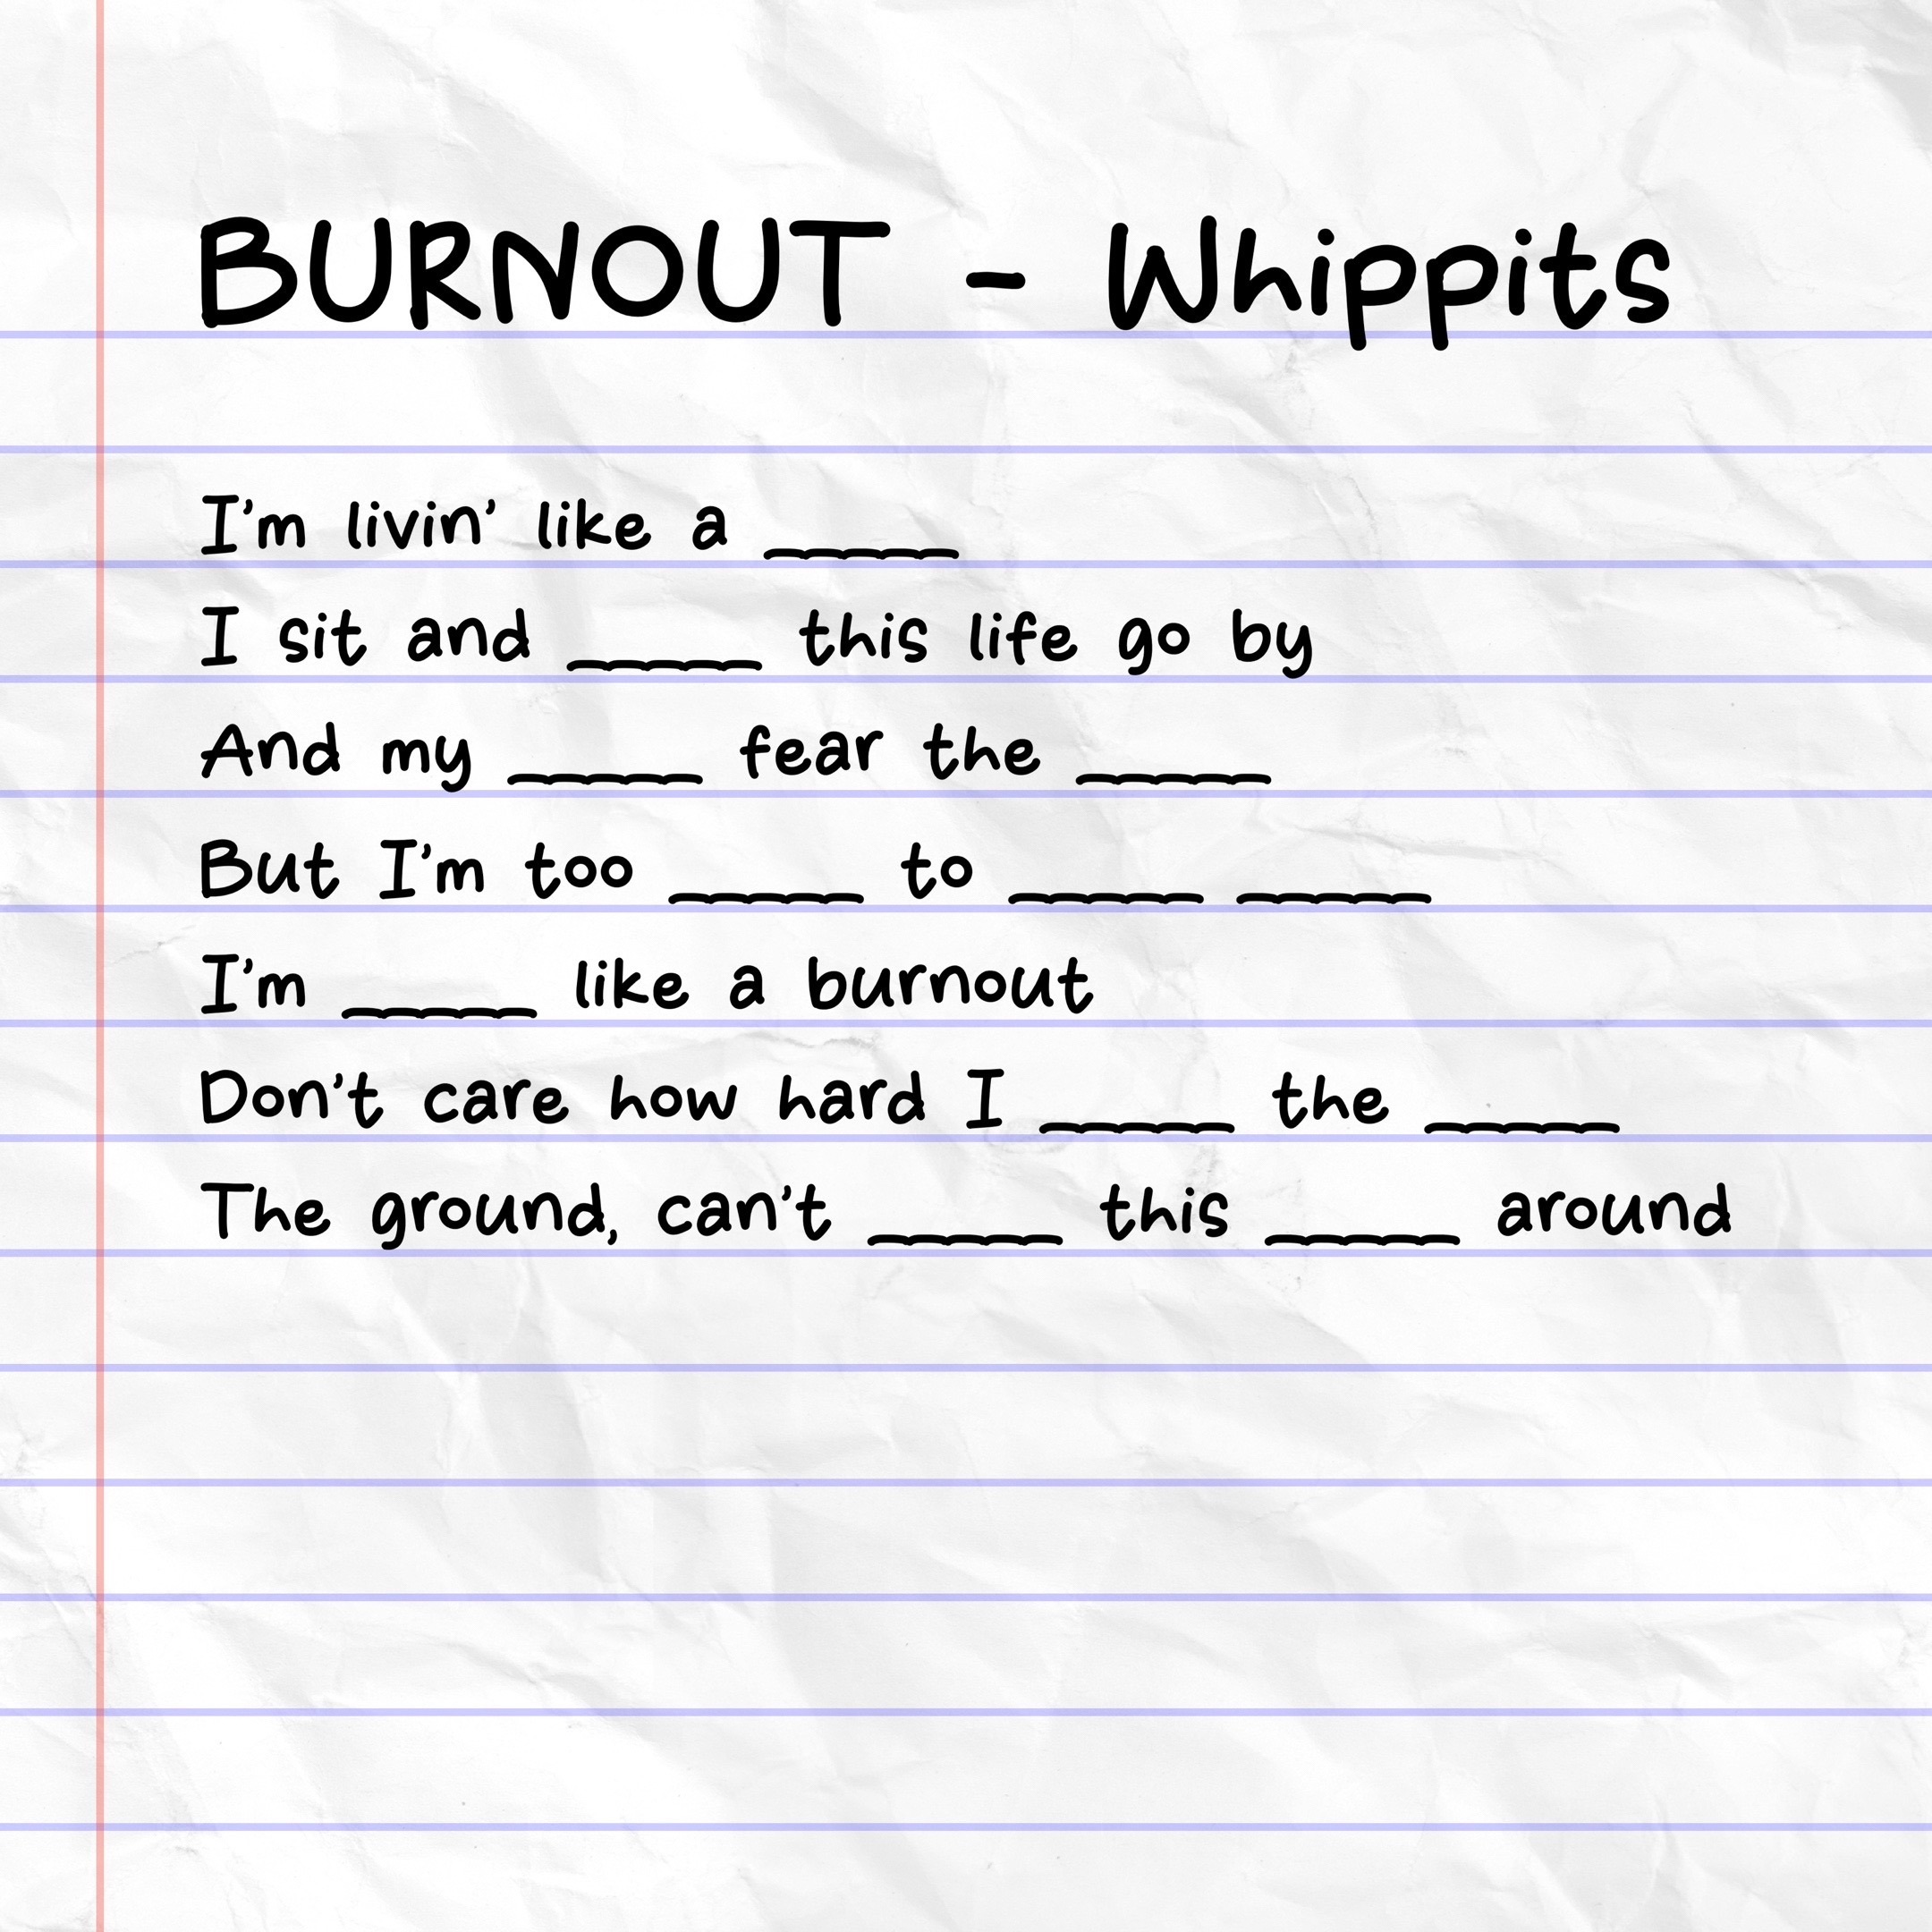 BURNOUT - Whippits
I'm livin' like a _____
I sit and _____ this life go by
And my _____ fear the _____
But I'm too _____ to _____ _____
I'm _____ like a burnout
Don't care how hard I _____ the _____
The ground, can't _____ this _____ around